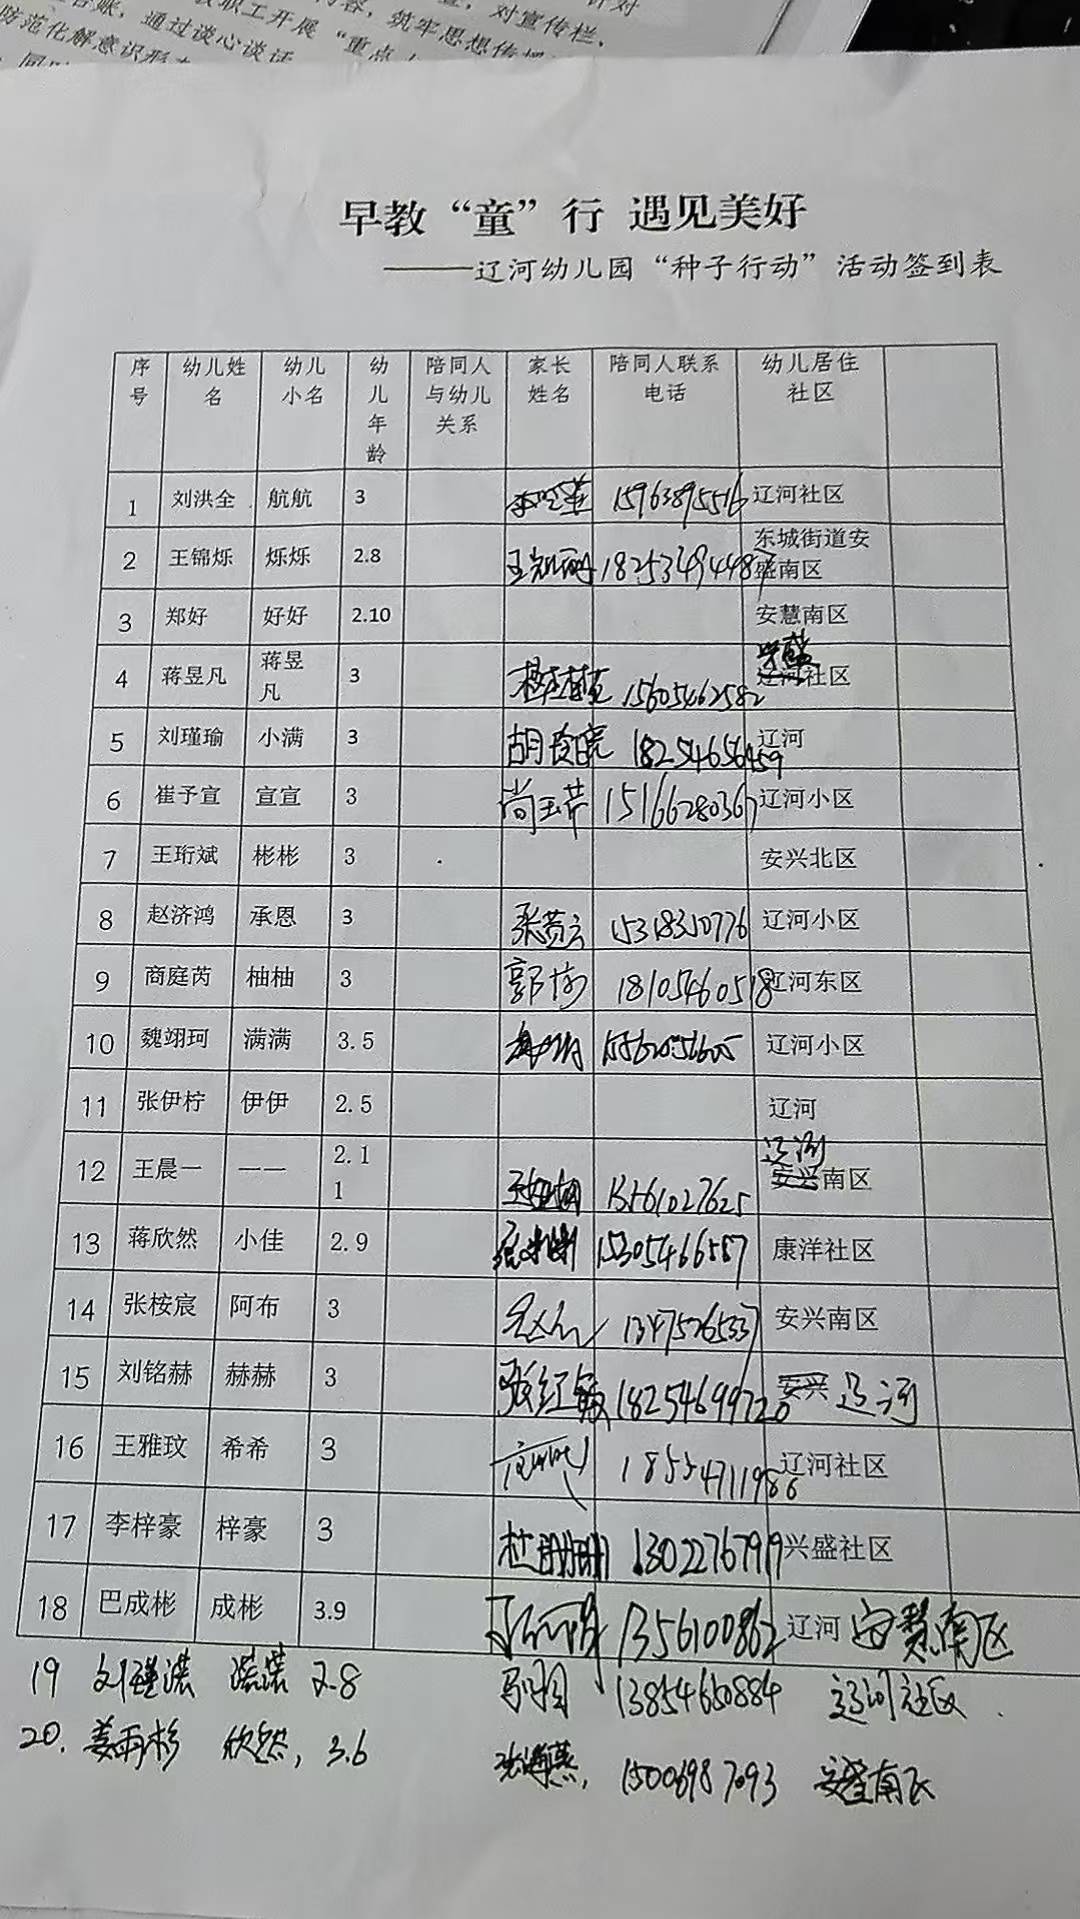 对宣传栏，
教职工开展“重点人
容，筑牢思想传播
台账，通过谈心谈话
防范化解意识形态
早教“童”行 遇见美好
———辽河幼儿园“种子行动”活动签到表
序号 幼儿姓名 幼儿小名 幼儿年龄 陪同人与幼儿关系 家长姓名 陪同人联系电话 幼儿居住社区
1 刘洪全 航航 3 15963895516 辽河社区
2 王锦烁 烁烁 2.8 东城街道安盛南区
3 郑好 好好 2.10 安慧南区
4 蒋昱凡 蒋昱凡 3 15605462582 兴盛 辽河社区
5 刘瑾瑜 小满 3 18254656459 辽河
6 崔予宣 宣宣 3 尚玉芹 15166280367 辽河小区
7 王珩斌 彬彬 3 安兴北区
8 赵济鸿 承恩 3 15318310776 辽河小区
9 商庭芮 柚柚 3 18105460518 辽河东区
10 魏翊珂 满满 3.5 辽河小区
11 张伊柠 伊伊 2.5 辽河
12 王晨一 一一 2.11 13561027625 辽河 安兴南区
13 蒋欣然 小佳 2.9 15305466587 康洋社区
14 张桉宸 阿布 3 13475265337 安兴南区
15 刘铭赫 赫赫 3 张红敏 18254699720 安兴 辽河
16 王雅玟 希希 3 18554711986 辽河社区
17 李梓豪 梓豪 3 杜珊珊 13022767919 兴盛社区
18 巴成彬 成彬 3.9 1356100862 辽河 安慧南区
19 2.8 13854660884 辽河社区
20. 姜雨杉 欣然, 3.6 张海燕, 15006987093 南区